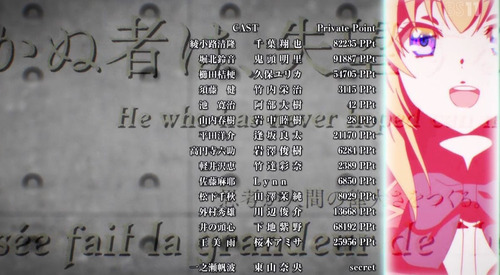 CAST Private Point
綾小路清隆 千葉翔也 82235 PPt
堀北鈴音 鬼頭明里 91887 PPt
櫛田桔梗 久保ユリカ 54705 PPt
須藤 健 竹内栄治 3115 PPt
池 寛治 阿部大樹 42 PPt
山内春樹 岩中睦樹 28 PPt
平田洋介 逢坂良太 21170 PPt
高円寺六助 岩澤俊樹 6281 PPt
軽井沢恵 竹達彩奈 2589 PPt
佐藤麻耶 Lynn 6850 PPt
松下千秋 山澤茉純 8029 PPt
外村秀雄 川辺俊介 13668 PPt
井の頭心 下地紫野 68192 PPt
王 美雨 桜木アミサ 25956 PPt
一之瀬帆波 東山奈央 secret
かぬ者は、失
He who has never hoped can n
思考 間の 大 さをつくる。
sée fait la grandeur de